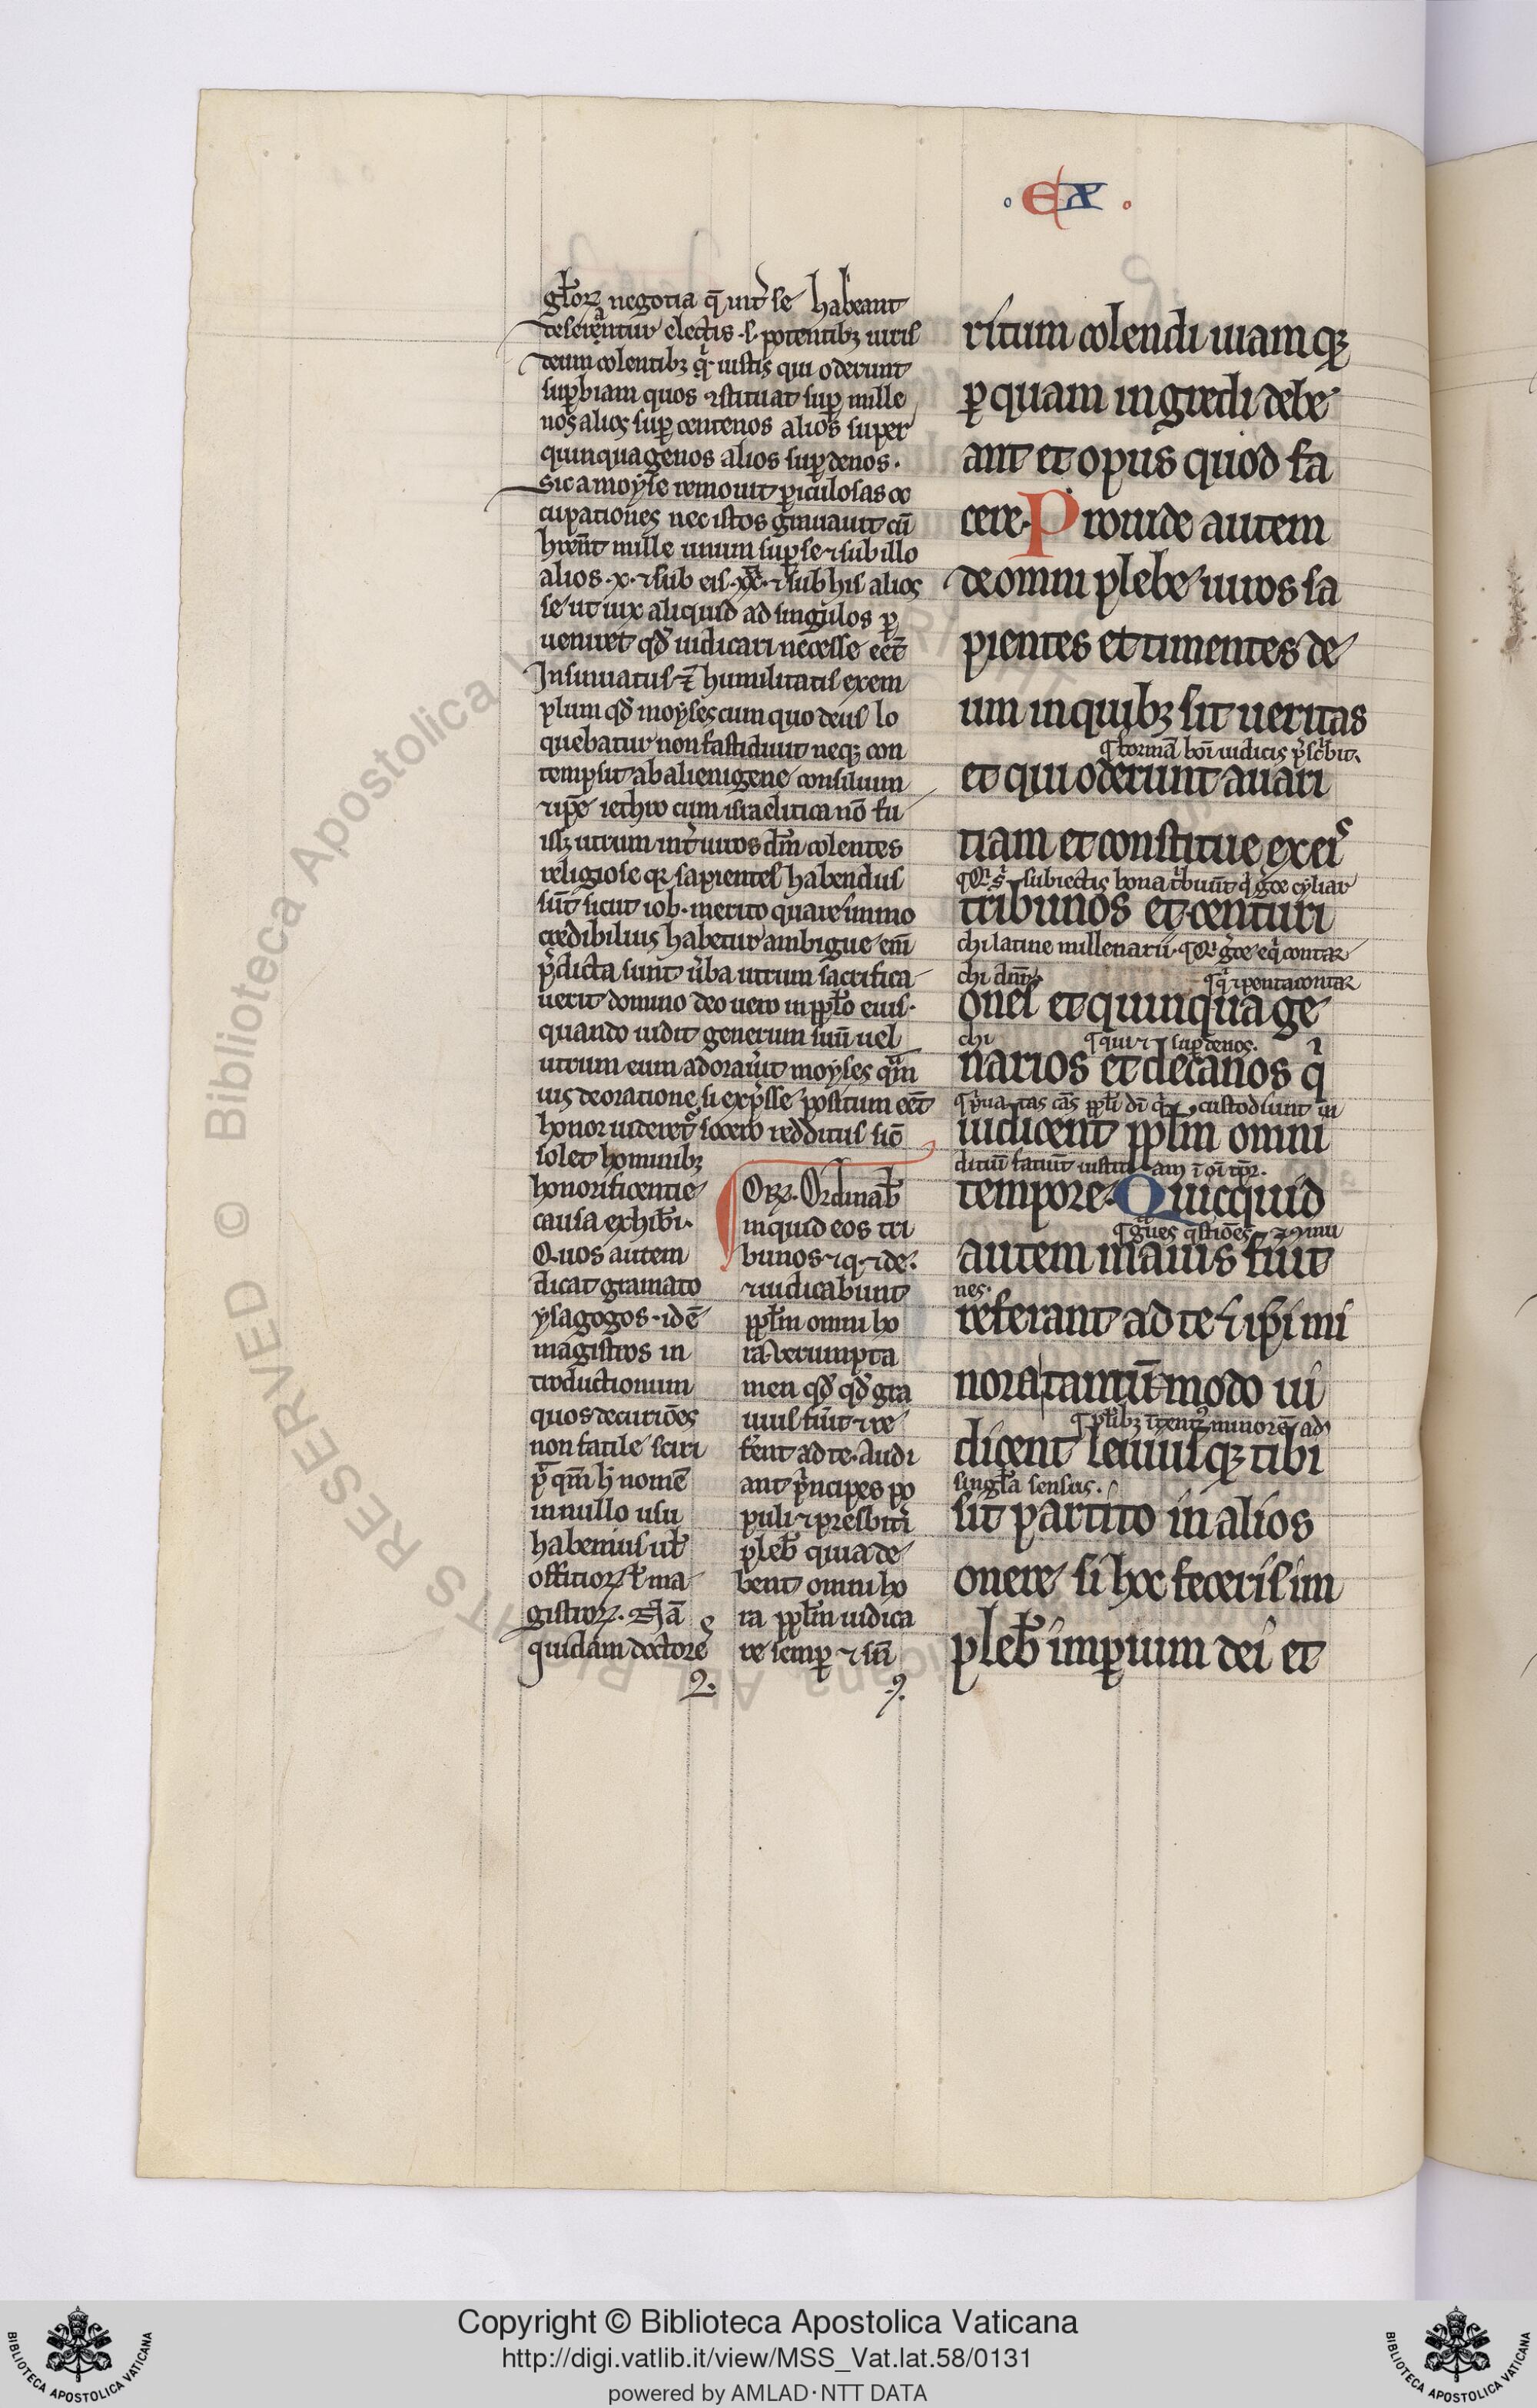 · EX ·
gl̄oꝝ negotia q̄ uit᷒ se habeant
deferantur electis ·s· potentibꝫ uiris
deum colentibꝫ ⁊ iustis qui oderunt
suꝑbiam quos ꝯstituat suꝑ mille
nos alios suꝑ centenos alios super
quinquagenos alios suꝑ denos ·
Sic a moyse remouit ꝑiculosas oc
cupationes nec istos grauauit cū
hrent mille unum suꝑ se ⁊ sub illo
alios ·x· ⁊ sub eis ·xx· ⁊ sub his alios
se ut uix aliquid ad singulos ꝑ
ueniret qđ iudicari necesse eēt
Insinuatus ē humilitatis exem
plum qđ moyses cum quo deus lo
quebatur non fastidiuit neqꝫ con
tempsit ab alienigene consilium
⁊ ip̄e iethro cum israelitica nō fu
issꝫ utrum int̄ uiros dm̄ colentes
religiose qꝫ sapientes habendus
sūt sicut iob · merito quare immo
credibilius habetur ambigue em̄
p̄dicta sunt ūba utrum sacrifica
uerit domino deo uero in ppl̄o eius ·
quando uidit generum suū uel
utrum eum adorauit moyses qm̄
uis de oratione si exp̄sse positum eēt
honor uideret᷒ socero redditus sic̄
solet hominibꝫ
honorificentie
causa exhib̄i ·
Quos autem
dicat gramato
ysagogos · id ē
magistros in
troductionum
quos decuriōes
non facile sciri
p̄ qm̄ h̄ nomē
in nullo usu
habemus ut̄
officioꝝ l̄ ma
gistroꝝ · Nā
quidam doctore
Oꝝ · Ordinab̄
inquid eos tri
bunos ⁊ q· ⁊ de ·
⁊ iudicabunt
ppl̄m omni ho
ra · Verumpta
men qđ qđ gra
uius fuit ⁊ re
fent ad te · Audi
ant p̄ncipes po
puli ⁊ presbit̄i
pleb̄ quia de
bent omni ho
ra ppl̄m iudica
re semꝑ ⁊ sn̄
ritum colendi uiamqꝫ
ꝑ quam ingredi debe
ant et opus quod fa
cere · Prouide autem
de omni plebe uiros sa
pientes et timentes de
um in quibꝫ sit ueritas
¶ formā boī iudicis p̄scbit
et qui oderunt auari
tiam et constitue ex eis
subiectis bona tribuūt q̄ gce cyliar
tribunos et centuri
chi latine millenarii · ¶ gce eq̄ contar
chi dnr̄ · ¶ q̄ ⁊ pentacontar
ones et quinquage
chi ¶ qui ⁊ suꝑ denos ·
narios et decanos q̄
¶ p̄uatas cās ppl̄i custodiunt iu
iudicent ppl̄m omni
diciū faciūt iustitiam ī oī tp̄r ·
tempore · Quicquid
¶ ḡues q̄stiōes ⁊ ꝯmu
autem maius fuit
nes ·
referant ad te ⁊ ip̄i mi
nora tantū modo iu
¶ minorē ad
dicent leuiusqꝫ tibi
singl̄a sensus ·
sit partito in alios
onere si hoc feceris im
pleb̄ imꝑium dei et
Copyright © Biblioteca Apostolica Vaticana
http://digi.vatlib.it/view/MSS_Vat.lat.58/0131
powered by AMLAD·NTT DATA
BIBLIOTECA APOSTOLICA VATICANA
BIBLIOTECA APOSTOLICA VATICANA